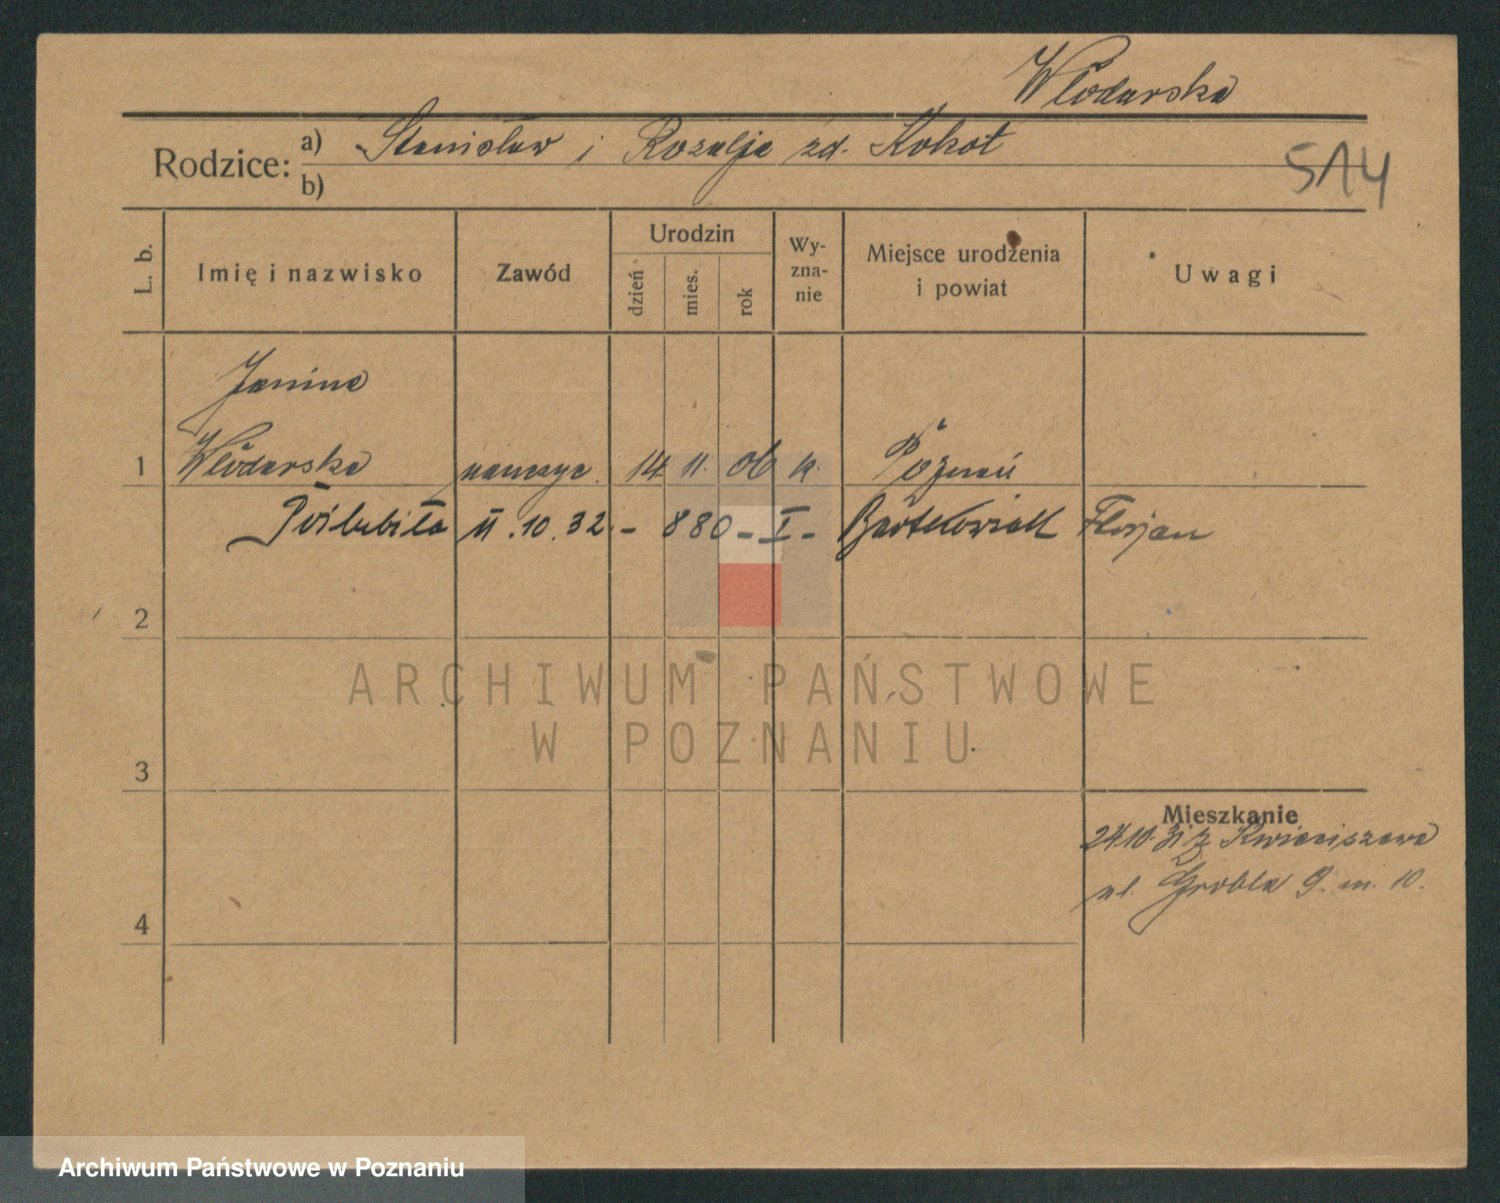 Włodarska
Rodzice: a) Stanisław i Rozalja zd. Kokot
b)
514
L. b. Imię i nazwisko Zawód Urodzin dzień mies. rok Wy-zna-nie Miejsce urodzenia i powiat Uwagi
Janina
1 Włodarska nauczyc. 14. 11. 06 k. Poznań
Poślubiła 11.10.32. - 880 - I - Bartkowiak Florjan
2
ARCHIWUM PAŃSTWOWE
W POZNANIU
3
Mieszkanie
24.10.31 z Kwieciszewa
ul. Grobla 9. m. 10.
4
Archiwum Państwowe w Poznaniu